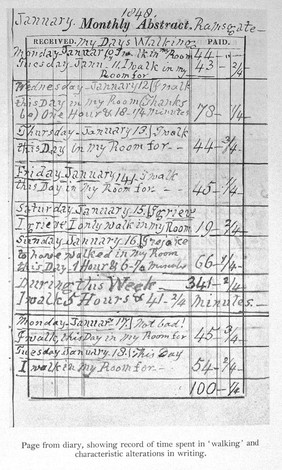 1848.
January. Monthly Abstract. Ramsgate-
RECEIVED. My Days Walking. PAID.
Monday January 10 in my Room 44-
Tuesday Jann. 11. I walk in my 43-3/4-
Room for
Wednesday-January 12. I walk
this Day in my Room (Thanks
be) One Hour & 18-1/4 minutes 78-1/4-
Thursday January 13. I walk
this Day in my Room for-- 44-3/4-
Friday January 14. I walk
this Day in my Room for-- 45-1/4-
Saturday January. 15. I grieve
I grieve I only walk in my Room 19-3/4-
Sunday January. 16. I rejoice
to have walked in my Room
this Day 1 Hour & 6-1/4 minutes 66-1/4-
During this Week- 341-3/4-
I walk 5 Hours & 41-3/4 minutes.-
Monday-January 17. Not bad!
I walk this Day in my Room for 45-3/4-
Tuesday January. 18. This Day
I walked in my Room for 54-2/4-
100-1/4-
Page from diary, showing record of time spent in 'walking' and
characteristic alterations in writing.